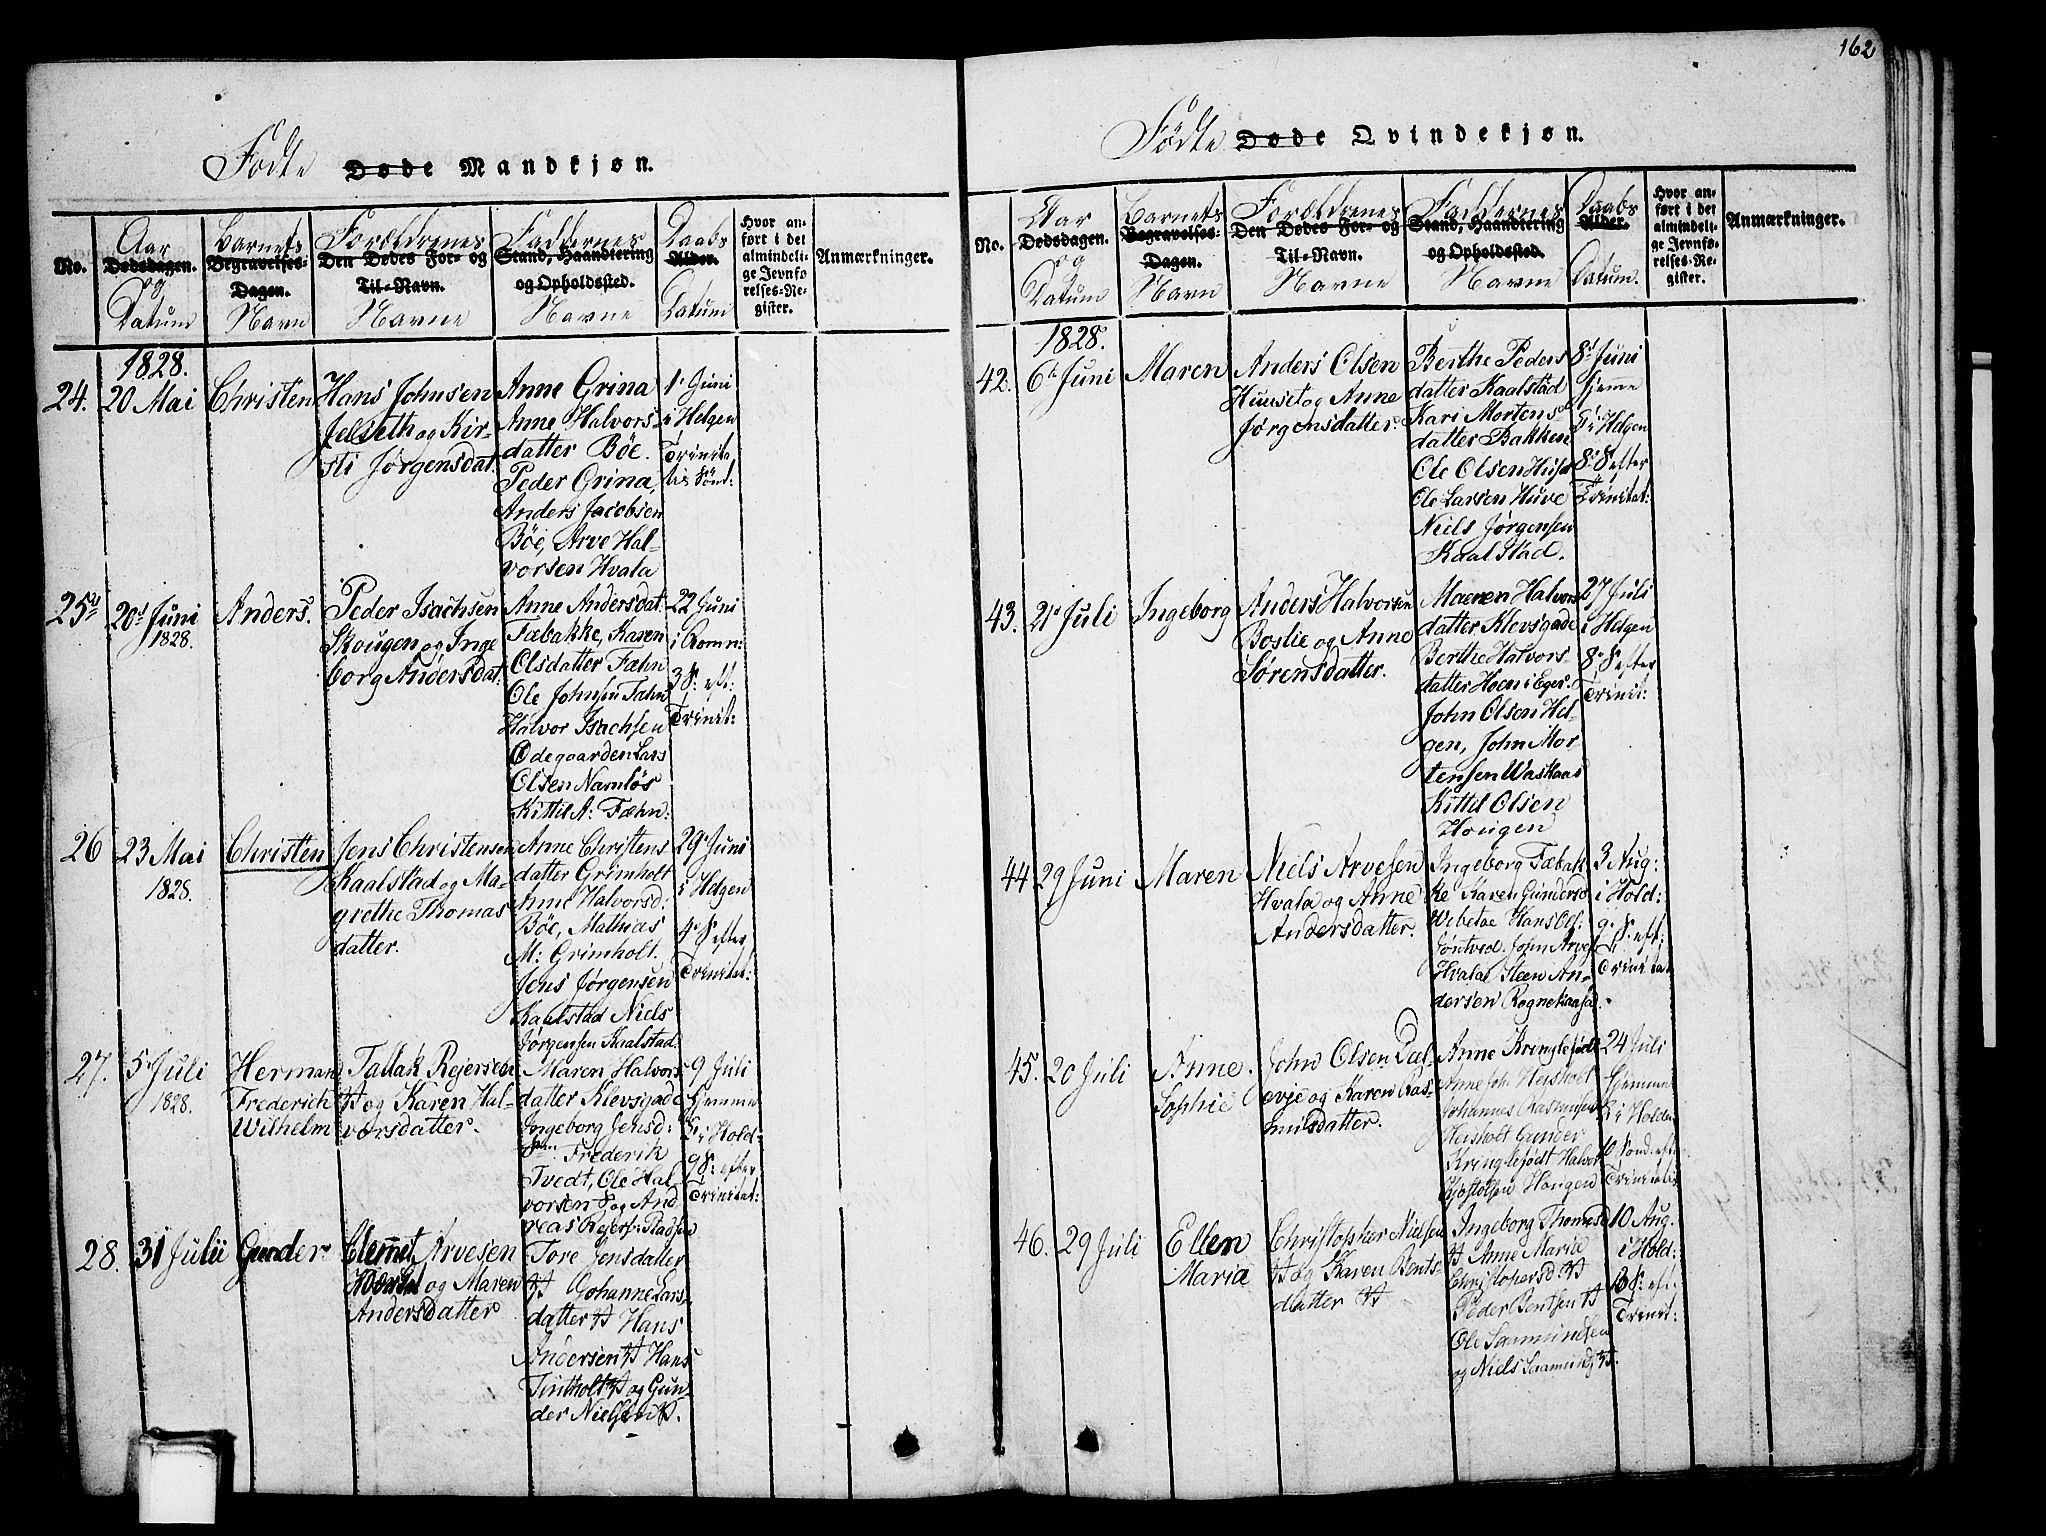 162
Fødte Døde Mandkjøn.
No.
Aar
Dødsdagen.
og
Datum
Barnets
Begravelses-
Dagen.
Navn
Forældrenes
Den Dødes For- og
Til-Navn.
Navne
Faddernes
Stand, Haandtering
og Opholdssted.
Navne
Daabs
Alder.
Datum
Hvor an-
ført i det
almindeli-
ge Jevnfø
relses-Re-
gister.
Anmærkninger.
24.
1828.
20 Mai
Christen
Hans Johnsen
Jelseth og Kir-
sti Jørgensdat.
Anne Grina
Anne Halvors-
datter Böe.
Peder Grina,
Anders Jacobsen
Böe, Arve Hal-
vorsen Hvala
1. Juni
i Helgen
Trinita
tis Sönd:
25
20. Juni
1828.
Anders.
Peder Isachsen
Skougen og Inge
borg Andersdat:
Anne Andersdat.
Fæbakke, Karen
Olsdatter Fæhn
Ole Johnsen Fæhn
Halvor Isachsen
Ødegaarden Lars
Olsen Namløs
Kittil A: Fæhn:
22 Juni
i Romn:
3 S: eft:
Trinit:
26
23 Mai
1828.
Christen
Jens Christensen
Kaalstad og Ma-
grethe Thomas
datter.
Anne Christens
datter Grimholt
Anne Halvorsd:
Böe, Mathias
M: Grimholt.
Jens Jørgensen
Kaalstad Niels
Jørgensen Kaalstad.
29 Juni
i Helgen
4. S: efter
Trinitat:
27.
5. Juli
1828.
Herman
Frederich
Wilhelm
Tallak Rejersen
og Karen Hal-
vorsdatter.
Maren Halvors-
datter Klevsgade
Ingeborg Jensd:
Frederik
Tvedt, Ole Hal-
vorsen og And
reas Rejers:
9 Juli
hjemme
i Hold-
9 S: efter
Trinitat:
28.
31 Julii
Gunder
Clemet Arvesen
og Maren
Andersdatter
Tore Jensdatter
Johanne Lars-
datter Hans
Andersen Hans
og Gun-
der Nielsen
Fødte Døde Qvindekjøn.
No.
Aar
Dødsdagen.
og
Datum
Barnets
Begravelses-
Dagen.
Navn
Forældrenes
Den Dødes For- og
Til-Navn.
Navne
Faddernes
Stand, Haandtering
og Opholdssted.
Navne
Daabs
Alder.
Datum.
Hvor an-
ført i det
almindeli-
ge Jevnfø-
relses-Re-
gister.
Anmærkninger.
42.
1828.
6 Juni
Maren
Anders Olsen
og Anne
Jørgensdatter.
Berthe Peders
datter Kaalstad
Kari Mortens
datter Bakken
Ole Olsen
Ole Larsen Huve
Niels Jørgensen
Kaalstad.
8 Juni
hjeme
i Helgen
8. S efter
Trinitat:
43.
21 Juli
Ingeborg
Anders Halvorsen
Boslie og Anne
Sørensdatter.
Maren Halvors
datter Klevsgade
Berthe Halvors-
datter Hoen i Eger.
John Olsen Hel-
gen, John Mor
tensen Waskaas
Kittil Olsen
Hougen
27 Juli
i Helgen
8. S efter
Trinit:
44
29 Juni
Maren
Niels Arvesen
Hvala og Anne
Andersdatter.
Ingeborg Fæbak
ke Karen Gundersd
Hans Ols:
John Arves
Hvala Steen An-
dersen
3 Aug:
i Hold:
9. S: eft:
Trinitat
45.
20 Juli
Anne
Sophie
John Olsen Dæl-
evje og Karen Ras-
musdatter.
Anne Kringlefødt
Anne Joh Heisholt
Johannes Rasmusen
Heisholt Gunder
Kringlefødt Halvor
Kjøstolsen Hougen
24 Juli
hjemme
i Holden
10 Sönd. eft
Trinitatis
46.
29 Juli
Ellen
Maria
Christopher Nielsen
og Karen Bents-
datter
Ingeborg Thomesd
Anne Maria
Christophersd:
Peder Bentsen
Ole Saamundsen
og Niels Saamunds.
10 Aug.
i Hold:
S: eft.
Trinit: